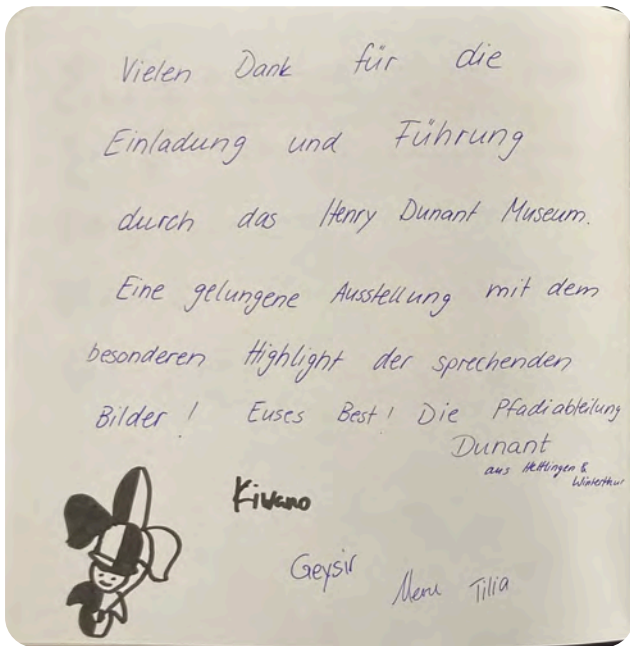 Vielen Dank für die
Einladung und Führung
durch das Henry Dunant Museum.
Eine gelungene Ausstellung mit dem
besonderen Highlight der sprechenden
Bilder! Euses Best! Die Pfadiabteilung
Dunant
aus Hettlingen &
Winterthur
Kivano
Geysir
Tilia